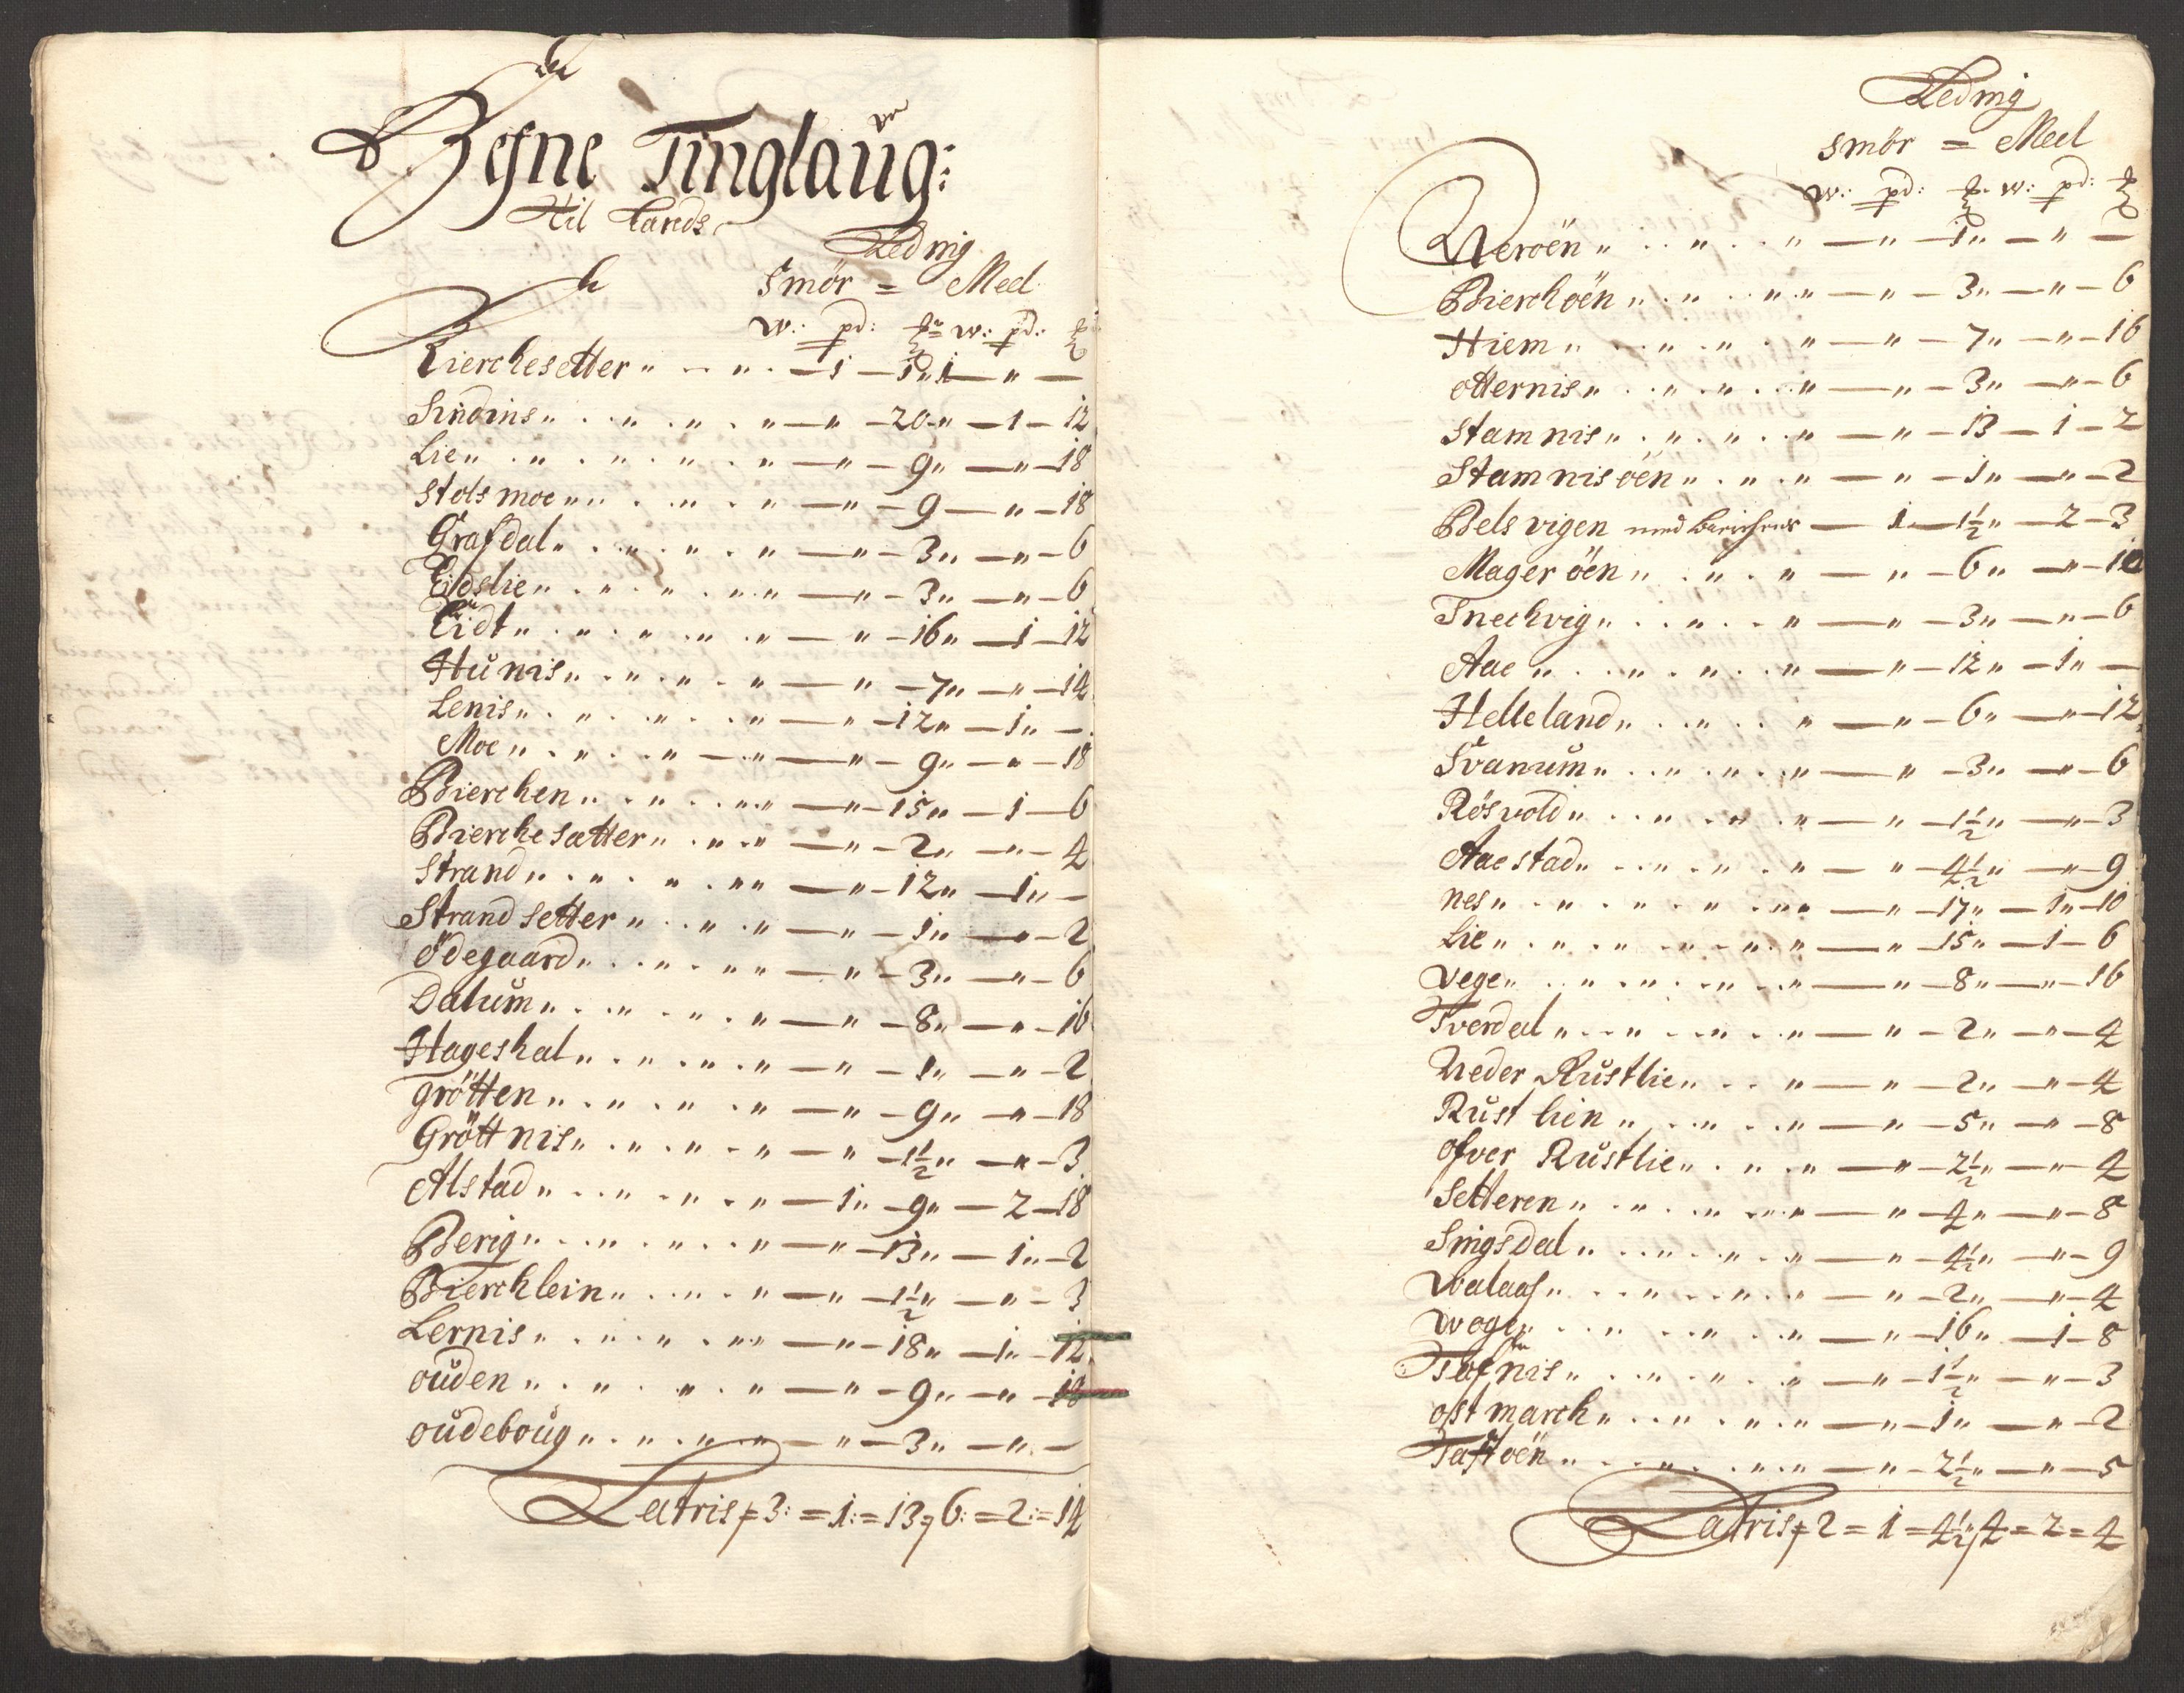 Befne Tinglaug:
Til Lands
Leding
Smör = Meel
w: pd: ℔ w: pd: ℔
Kierchesetter „ . „ . — 1 — 1 „ 1 — „ —
Sindins „ . „ . „ . „ — „ — 20 „ — 1 — 12
Lie „ . „ . „ . „ . „ — „ — 9 „ — „ — 18
Stolsmoe „ „ . „ . „ — „ — 9 — „ — 18
Grafdal „ . „ . „ . „ — „ — 3 „ — „ — 6
Eidslie „ . „ . „ . „ — „ — 3 „ — „ — 6
Eidt „ . „ . „ . „ . „ — „ — 16 „ — 1 — 12
Hunis „ . „ . „ . „ — „ — 7 „ — „ — 14
Lenis „ . „ . „ . „ — „ — 12 „ — 1 „ —
Moe „ . „ . „ — „ — „ — 9 „ — „ — 18
Bierchen „ . „ . „ „ — „ — 15 „ — 1 — 6
Bierche sætter „ . „ . „ — „ — 2 „ — „ — 4
Strand „ . „ . „ . „ „ — „ — 12 „ — 1 „ —
Strand setter „ . „ . „ — „ — 1 „ — „ — 2
ödegaard „ . „ . „ „ — „ — 3 „ — „ — 6
Dalum „ . „ . „ . „ — „ — 8 „ — „ — 16
Hageskal „ . „ . „ . „ — „ — 1 „ — „ — 2
grötten „ . „ . „ . „ — „ — 9 „ — „ — 18
Gröttnis „ . „ . „ . „ — „ — 1½ „ — „ — 3
Alstad „ . „ . „ . „ — 1 „ — 9 „ — 2 — 18
Berig „ . „ . „ . „ — „ — 13 „ — 1 „ — 2
Bierchlein „ . „ . „ — „ — 1½ „ — „ — 3
Lernis „ . „ . „ . „ — „ — 18 „ — 1 „ — 12
ouden „ . „ . „ . „ — „ — 9 „ — „ — 18
oudeboug „ . „ . „ . „ — „ — 3 „ — „ —
Latris 3: = 1: = 13 6: = 2: = 14
Leding
smör = Meel
w: pd: ℔ w: pd: ℔
Weröen „ . „ . „ — „ — 1 „ — „ —
Bierchöen „ . „ . „ „ — „ — 3 „ — „ — 6
Hiem „ . „ . „ . „ — „ — 7 „ — „ — 16
otternis „ . „ . „ . „ — „ — 3 „ — „ — 6
Stamnis „ . „ . „ . „ — „ — 13 — 1 — 2
Stamnisöen „ . „ . „ — „ — 1 „ — „ — 2
Belsvigen med — 1 — 1½ „ — 2 — 3
Mageröen „ . „ . „ — „ — 6 „ — „ — 10
Snechvig „ . „ . „ — „ — 3 „ — „ — 6
Aae „ . „ . „ . „ — „ — 12 „ — 1 „ —
Helleland „ . „ . „ — „ — 6 „ — „ — 12
Svanum „ . „ . „ . „ — „ — 3 „ — „ — 6
Rösvold „ . „ . „ . „ — „ — 1½ „ — „ — 3
Aaestad „ . „ . „ . „ — „ — 4½ „ — „ — 9
nes „ . „ . „ . „ . „ — „ — 17 „ — 1 „ — 10
Lie „ . „ . „ . „ . „ — „ — 15 „ — 1 — 6
Vege „ . „ . „ . „ — „ — 8 „ — „ — 16
Tverdal „ . „ . „ . „ — „ — 2 „ — „ — 4
Neder Rustlie „ . . „ — „ — 2 „ — „ — 4
Rust lien „ . „ . „ — „ — 5 „ — „ — 8
ofver Rustlie „ . „ . „ — „ — 2½ „ — „ — 4
Setteren „ . „ . „ . „ — „ — 4 „ — „ — 8
Singsdal „ . „ . „ . „ — „ — 4½ „ — „ — 9
Walaas „ . „ . „ . „ — „ — 2 „ — „ — 4
Woge „ . „ . „ . „ — „ — 16 „ — 1 — 8
Tafnis „ . „ . „ . „ — „ — 1½ „ — „ — 3
ost march „ . „ . „ . „ — „ — 1 „ — „ — 2
Taftöen „ . „ . „ . „ — „ — 2½ „ — „ — 5
Latris 2 = 1 = 4½ 4 = 2 = 4